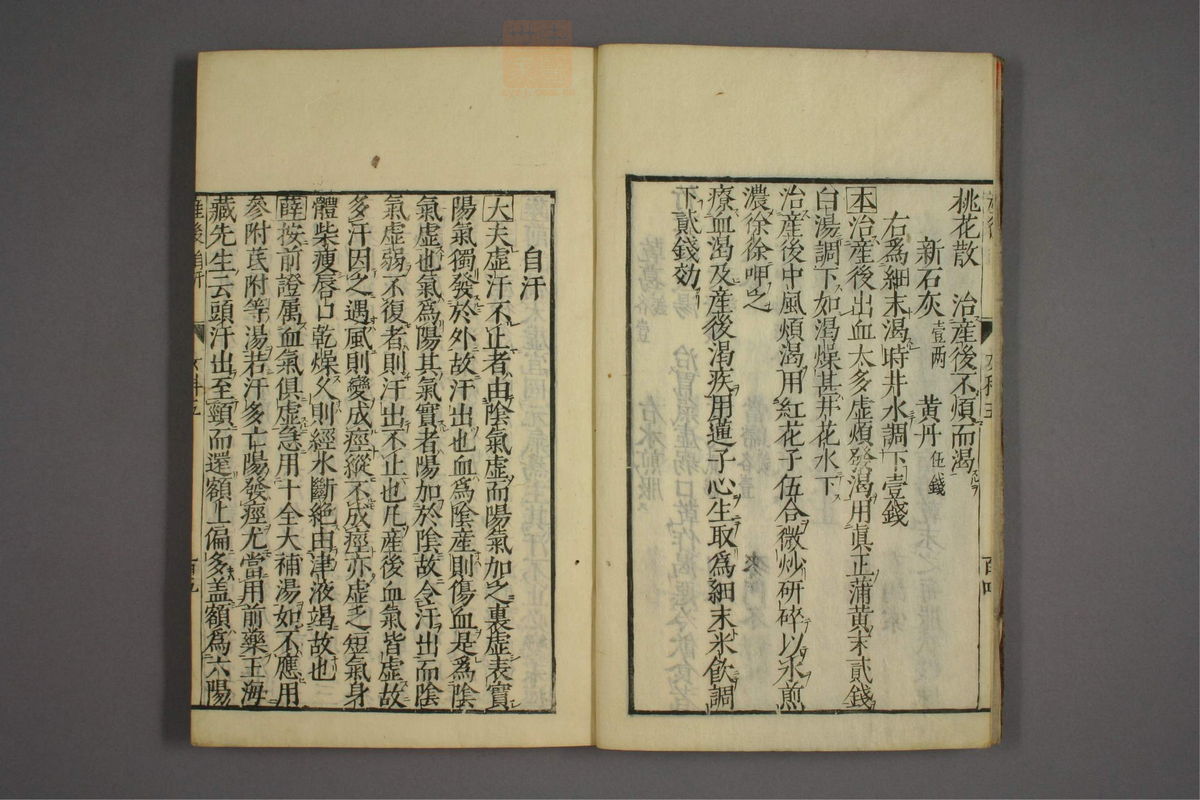 桃花散　治產後不煩而渴
新石灰 壹兩　黃丹 伍錢
右爲細末渴時井水調下壹錢
本治產後出血太多虛煩發渴用眞正蒲黃末貳錢
白湯調下如渴燥甚井花水下
治產後中風煩渴用紅花子伍合微炒研碎以水煎
濃徐徐呷之
療血渴及產後渴疾用蓮子心生取爲細末米飮調
下貳錢効
自汗
大夫虛汗不止者由陰氣虛而陽氣加之裏虛表實
陽氣獨發於外故汗出也血爲陰產則傷血是爲陰
氣虛也氣爲陽其氣實者陽加於陰故令汗出而陰
氣虛弱不復者則汗出不止也凡產後血氣皆虛故
多汗因之遇風則變成痙縱不成痙亦虛乏短氣身
體柴瘦唇口乾燥久則經水斷絕由津液竭故也
薛按前證属血氣俱虛急用十全大補湯如不應用
參附芪附等湯若汗多亡陽發痙尤當用前藥王海
藏先生云頭汗出至頸而還額上偏多盖額爲六陽